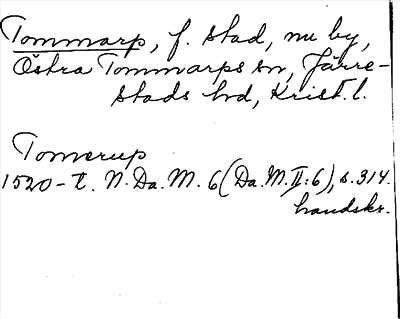 Tommarp, f. stad, nu by,
Östra Tommarps sn, Järre-
stads hd, Krist. l.
Tomerup
1520-t. N. Da. M. 6 (Da. M. II:6), s. 314.
handskr.